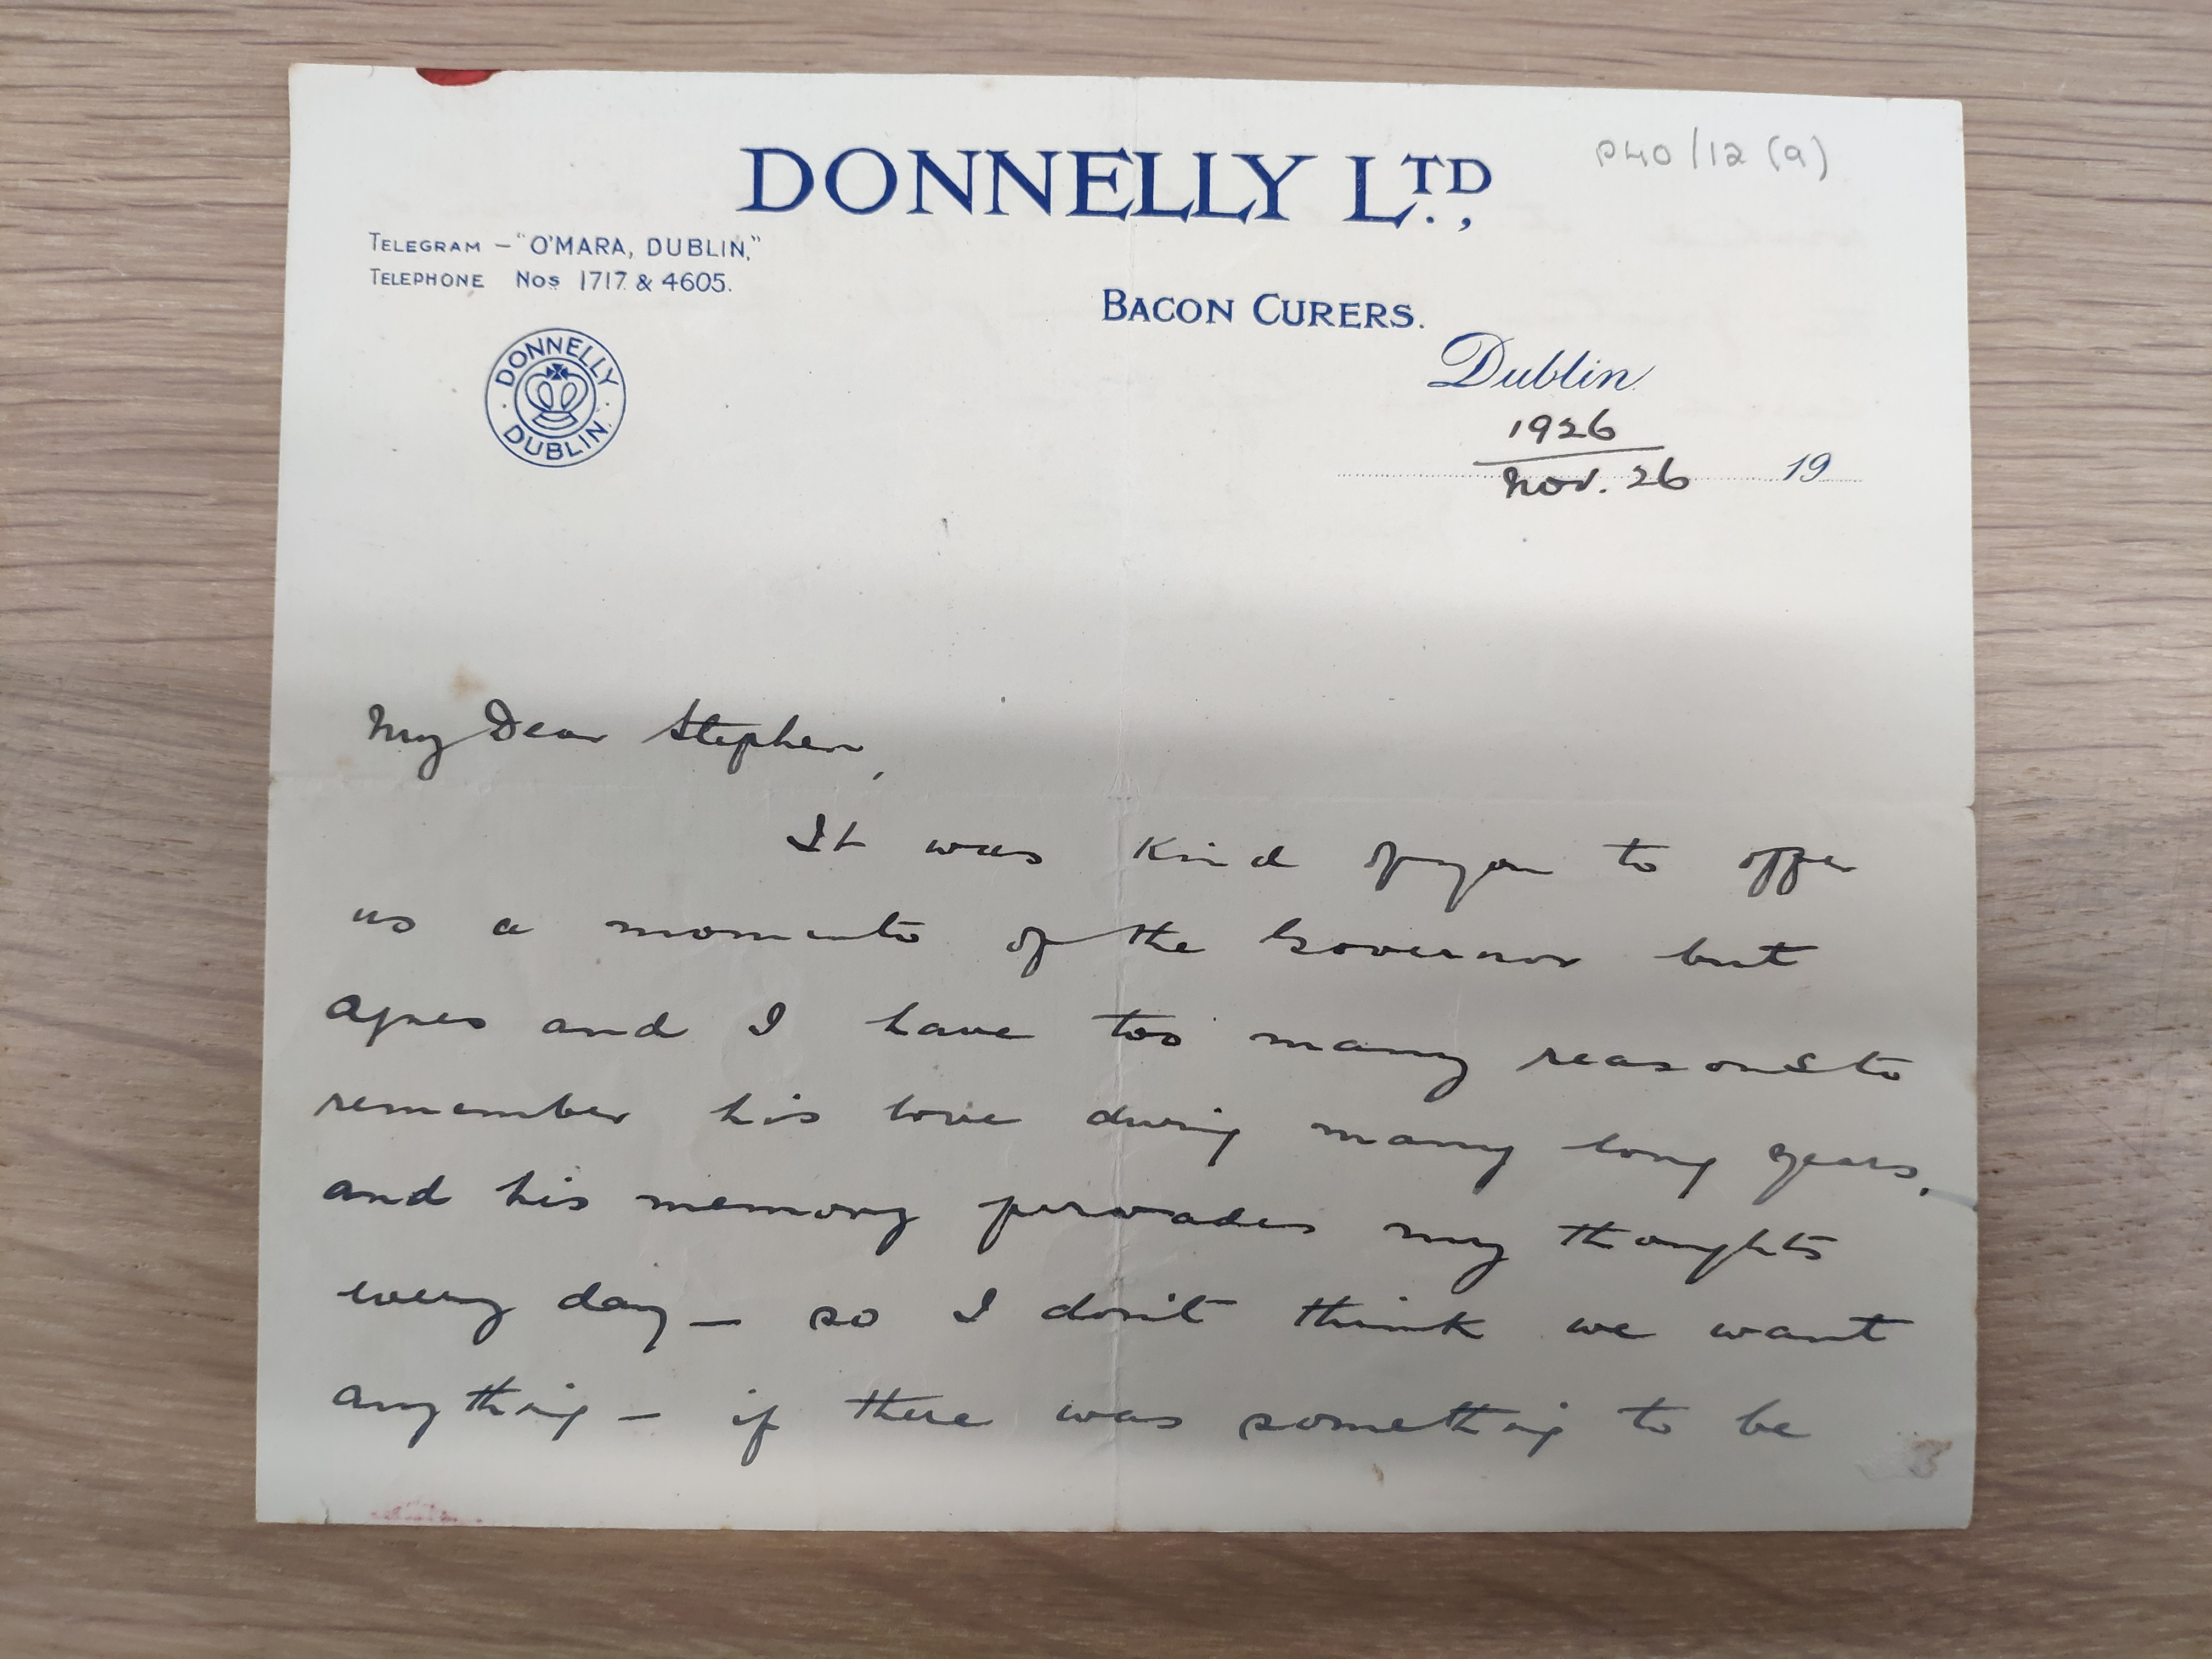 P40/12 (a)
DONNELLY LTD.,
TELEGRAM – "O'MARA, DUBLIN,"
TELEPHONE Nos 1717 & 4605.
BACON CURERS.
DONNELLY
DUBLIN.
Dublin
1926
Nov. 26 19
My Dear Stephen,
It was kind of you to offer
us a momento of the Governor but
Agnes and I have too many reasons to
remember his love during many long years,
and his memory pervades my thoughts
every day – so I don't think we want
anything – if there was something to be